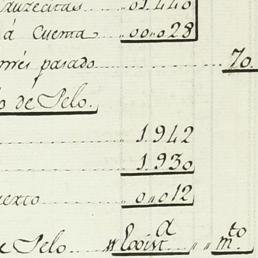 ruzecitas .... 01.440
á Cuenta .. 00.0.28
mes pasado ........ 70.
o de Pelo.
1.942
1.930
uexto .... 0.0.12
e Pelo .. " Exist.ª " " m.to